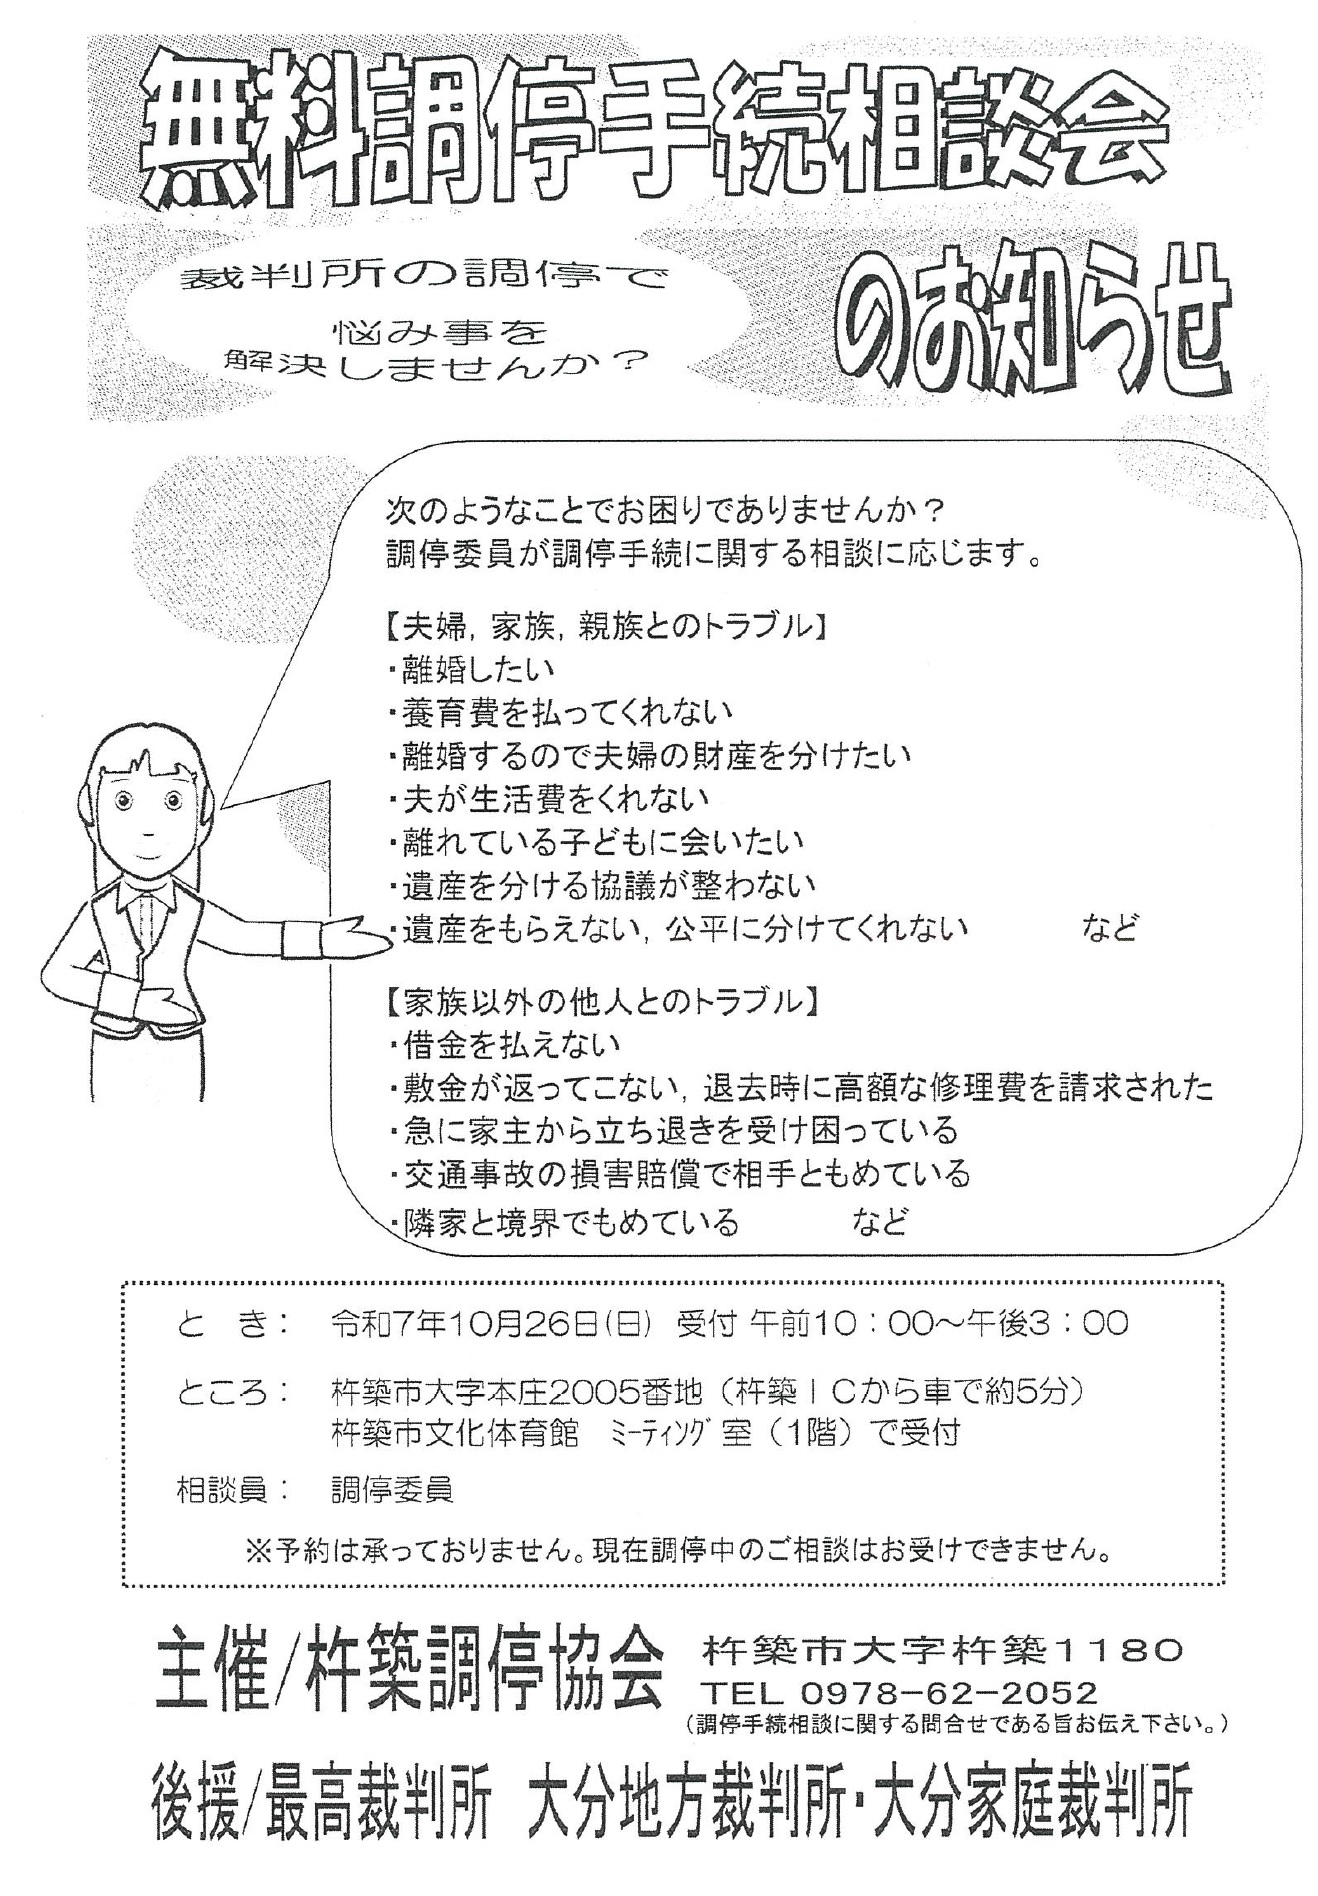 無料調停手続相談会
のお知らせ
裁判所の調停で
悩み事を
解決しませんか?
次のようなことでお困りでありませんか?
調停委員が調停手続に関する相談に応じます。
【夫婦, 家族, 親族とのトラブル】
・離婚したい
・養育費を払ってくれない
・離婚するので夫婦の財産を分けたい
・夫が生活費をくれない
・離れている子どもに会いたい
・遺産を分ける協議が整わない
・遺産をもらえない, 公平に分けてくれない など
【家族以外の他人とのトラブル】
・借金を払えない
・敷金が返ってこない, 退去時に高額な修理費を請求された
・急に家主から立ち退きを受け困っている
・交通事故の損害賠償で相手ともめている
・隣家と境界でもめている など
と き: 令和7年10月26日(日) 受付 午前10:00~午後3:00
ところ: 杵築市大字本庄2005番地(杵築ICから車で約5分)
杵築市文化体育館 ミーティング室(1階)で受付
相談員: 調停委員
※予約は承っておりません。現在調停中のご相談はお受けできません。
主催/杵築調停協会
杵築市大字杵築1180
TEL 0978-62-2052
(調停手続相談に関する問合せである旨お伝え下さい。)
後援/最高裁判所 大分地方裁判所・大分家庭裁判所